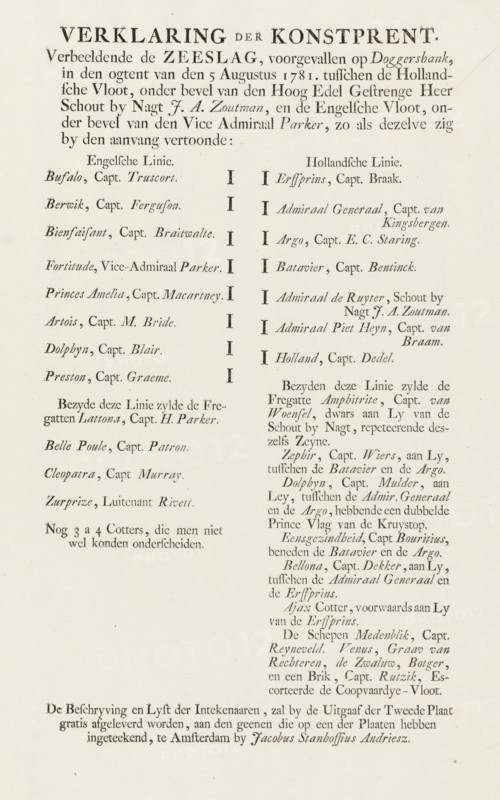 VERKLARING DER KONSTPRENT.
Verbeeldende de ZEESLAG, voorgevallen op Doggersbank,
in den ogtent van den 5 Augustus 1781. tuſſchen de Holland-
ſche Vloot, onder bevel van den Hoog Edel Geſtrenge Heer
Schout by Nagt J. A. Zoutman, en de Engelſche Vloot, on-
der bevel van den Vice Admiraal Parker, zo als dezelve zig
by den aanvang vertoonde:
Engelſche Linie.
Bufalo, Capt. Truscort. I
Berwik, Capt. Ferguſon. I
Bienfaiſant, Capt. Braitwalte. I
Fortitude, Vice-Admiraal Parker. I
Princes Amelia, Capt. Macartney. I
Artois, Capt. M. Bride. I
Dolphyn, Capt. Blair. I
Preston, Capt. Graeme. I
Bezyde deze Linie zylde de Fre-
gatten Lattona, Capt. H. Parker.
Belle Poule, Capt. Patron.
Cleopatra, Capt Murray.
Zurprize, Luitenant Rivett.
Nog 3 a 4 Cotters, die men niet
wel konden onderſcheiden.
Hollandſche Linie.
I Erſſprins, Capt. Braak.
I Admiraal Generaal, Capt. van
Kingsbergen.
I Argo, Capt. E. C. Staring.
I Batavier, Capt. Bentinck.
I Admiraal de Ruyter, Schout by
Nagt J. A. Zoutman.
I Admiraal Piet Heyn, Capt. van
Braam.
I Holland, Capt. Dedel.
Bezyden deze Linie zylde de
Fregatte Amphitrite, Capt. van
Woenſel, dwars aan Ly van de
Schout by Nagt, repeteerende des-
zelfs Zeyne.
Zephir, Capt. Wiers, aan Ly,
tuſſchen de Batavier en de Argo.
Dolphyn, Capt. Mulder, aan
Ley, tuſſchen de Admir. Generaal
en de Argo, hebbende een dubbelde
Prince Vlag van de Kruystop.
Eensgezindheid, Capt Bouritius,
beneden de Batavier en de Argo.
Bellona, Capt. Dekker, aan Ly,
tuſſchen de Admiraal Generaal en
de Erſſprins.
Ajax Cotter, voorwaards aan Ly
van de Erſſprins.
De Schepen Medenblik, Capt.
Reyneveld. Venus, Graav van
Rechteren, de Zwaluw, Botger,
en een Brik, Capt. Rutzik, Es-
corteerde de Coopvaardye-Vloot.
De Beſchryving en Lyſt der Intekenaaren, zal by de Uitgaaf der Tweede Plaat
gratis afgeleverd worden, aan den geenen die op een der Plaaten hebben
ingeteekend, te Amſterdam by Jacobus Stanhoffius Andriesz.